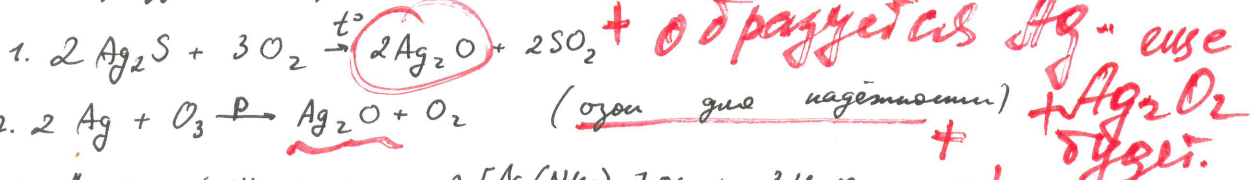 1. 2 Ag₂S + 3O₂ →t° 2Ag₂O + 2SO₂ + образуется Ag
2. 2 Ag + O₃ →p Ag₂O + O₂ (озон для надёжности) + еще + Ag₂O₂ будет.